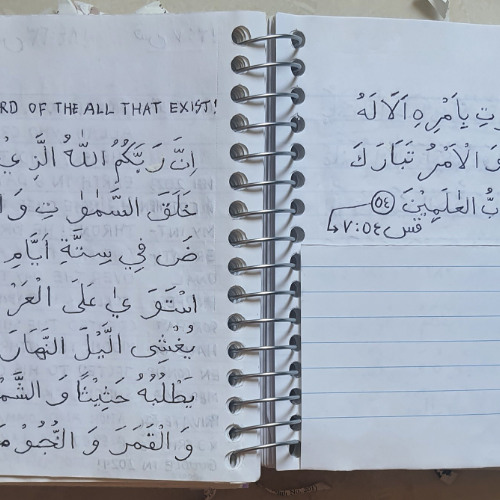 RD OF THE ALL THAT EXIST!
اِنَّ رَبَّكُمُ اللّٰهُ الَّزِيْ
خَلَقَ السَّمٰوٰتِ وَا
ضَ فِي سِتَّةِ اَيَّامٍ
اسْتَوَ يٰ عَلَى الْعَرْ
يُغْشِى الَّيْلَ النَّهَارَ
يَطْلُبُهُ حَثِيْثًا وَ الشَّمْ
وَ الْقَمَرَ وَ النُّجُوْ مَ
تٍ بِاَمْرِهِ اَلَا لَهُ
وَ الْاَمْرُ تَبَارَكَ
بُّ الْعٰلَمِيْنَ ٥٤
٧:٥٤